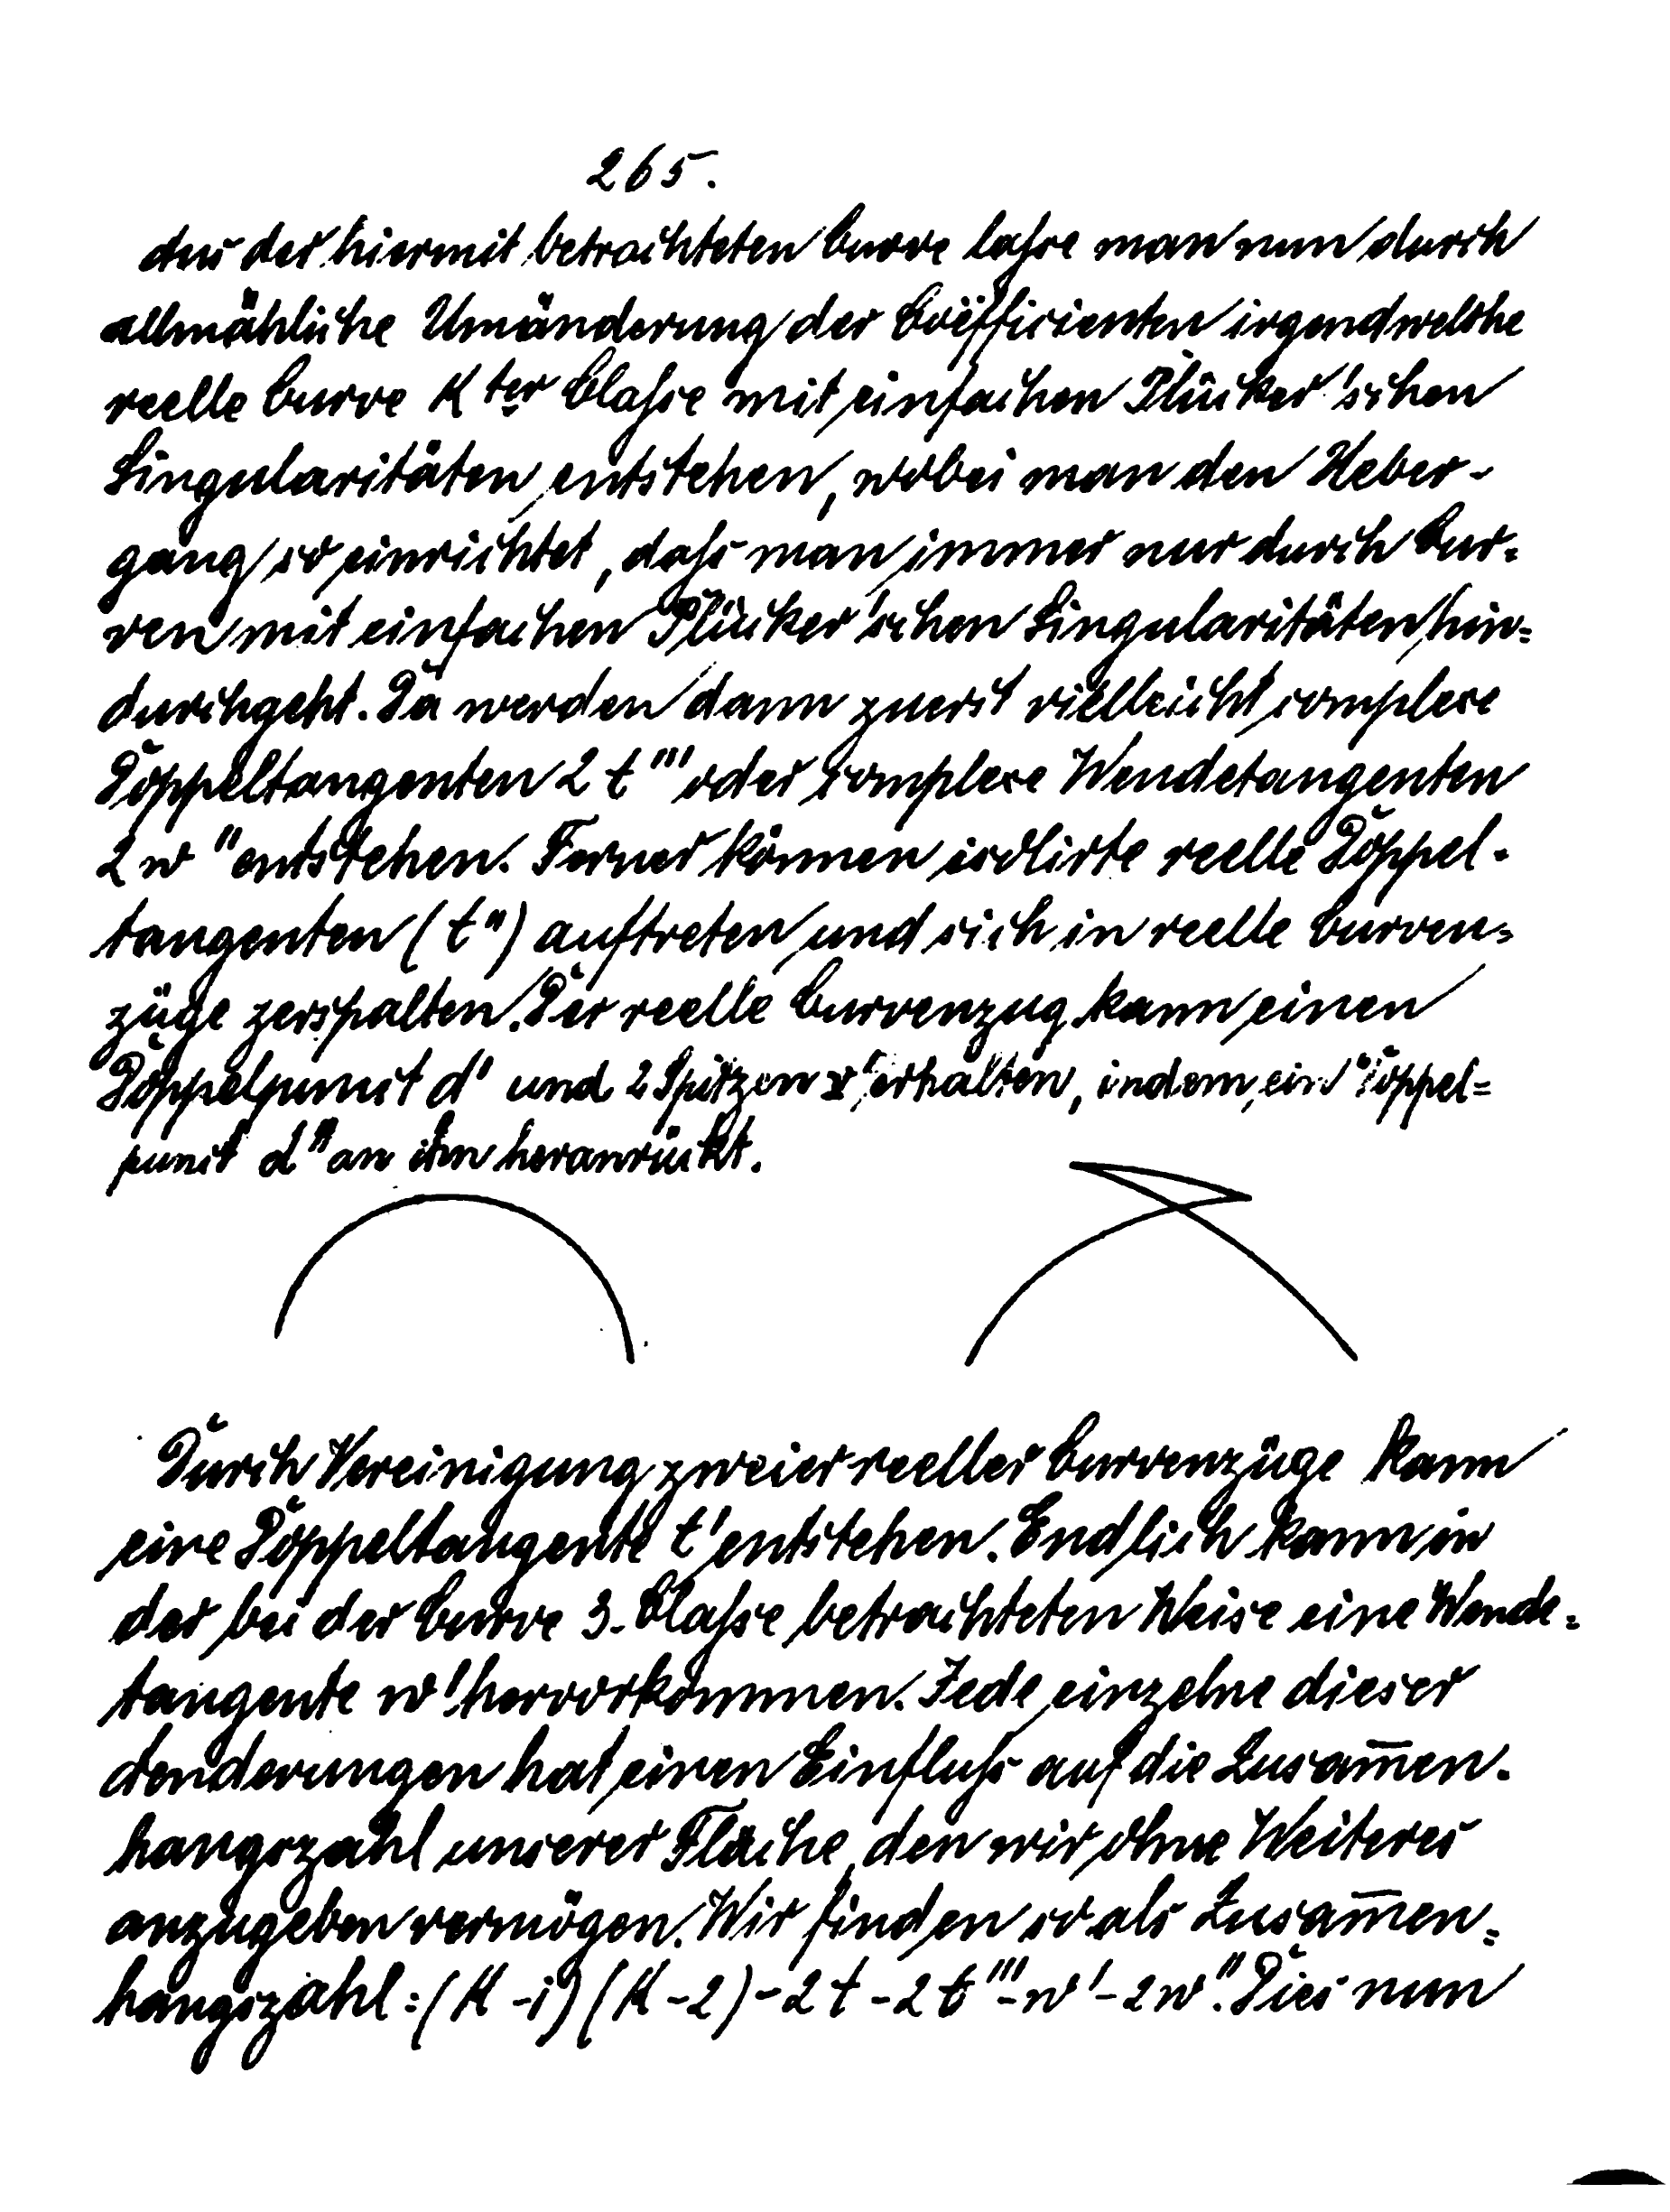 265.
Aus der hiermit betrachteten Curve lasse man nun durch
allmähliche Umänderung der Coëfficienten irgendwelche
reelle Curve K ter Classe mit einfachen Plücker'schen
Singularitäten entstehen, wobei man den Ueber-
gang so einrichtet, dass man immer nur durch Cur-
ven mit einfachen Plücker'schen Singularitäten hin-
durchgeht. Da werden dann zuerst vielleicht complexe
Doppeltangenten 2 t''' oder complexe Wendetangenten
2 w'' entstehen. Ferner können isolirte reelle Doppel-
tangenten (t'') auftreten und sich in reelle Curven-
züge zerspalten. Der reelle Curvenzug kann einen
Doppelpunct d' und 2 Spitzen r' erhalten, indem ein Doppel=
punct d'' an ihn heranrückt.
Durch Vereinigung zweier reeller Curvenzüge kann
eine Doppeltangente t' entstehen. Endlich kann in
der bei der Curve 3. Classe betrachteten Weise eine Wende-
tangente w' hervorkommen. Jede einzelne dieser
Aenderungen hat einen Einfluss auf die Zusam̅en-
hangszahl unserer Fläche, den wir ohne Weiteres
anzugeben vermögen. Wir finden so als Zusam̅en-
hangszahl: (K-1)(K-2)-2t-2t'''-w'-2w''. Dies nun